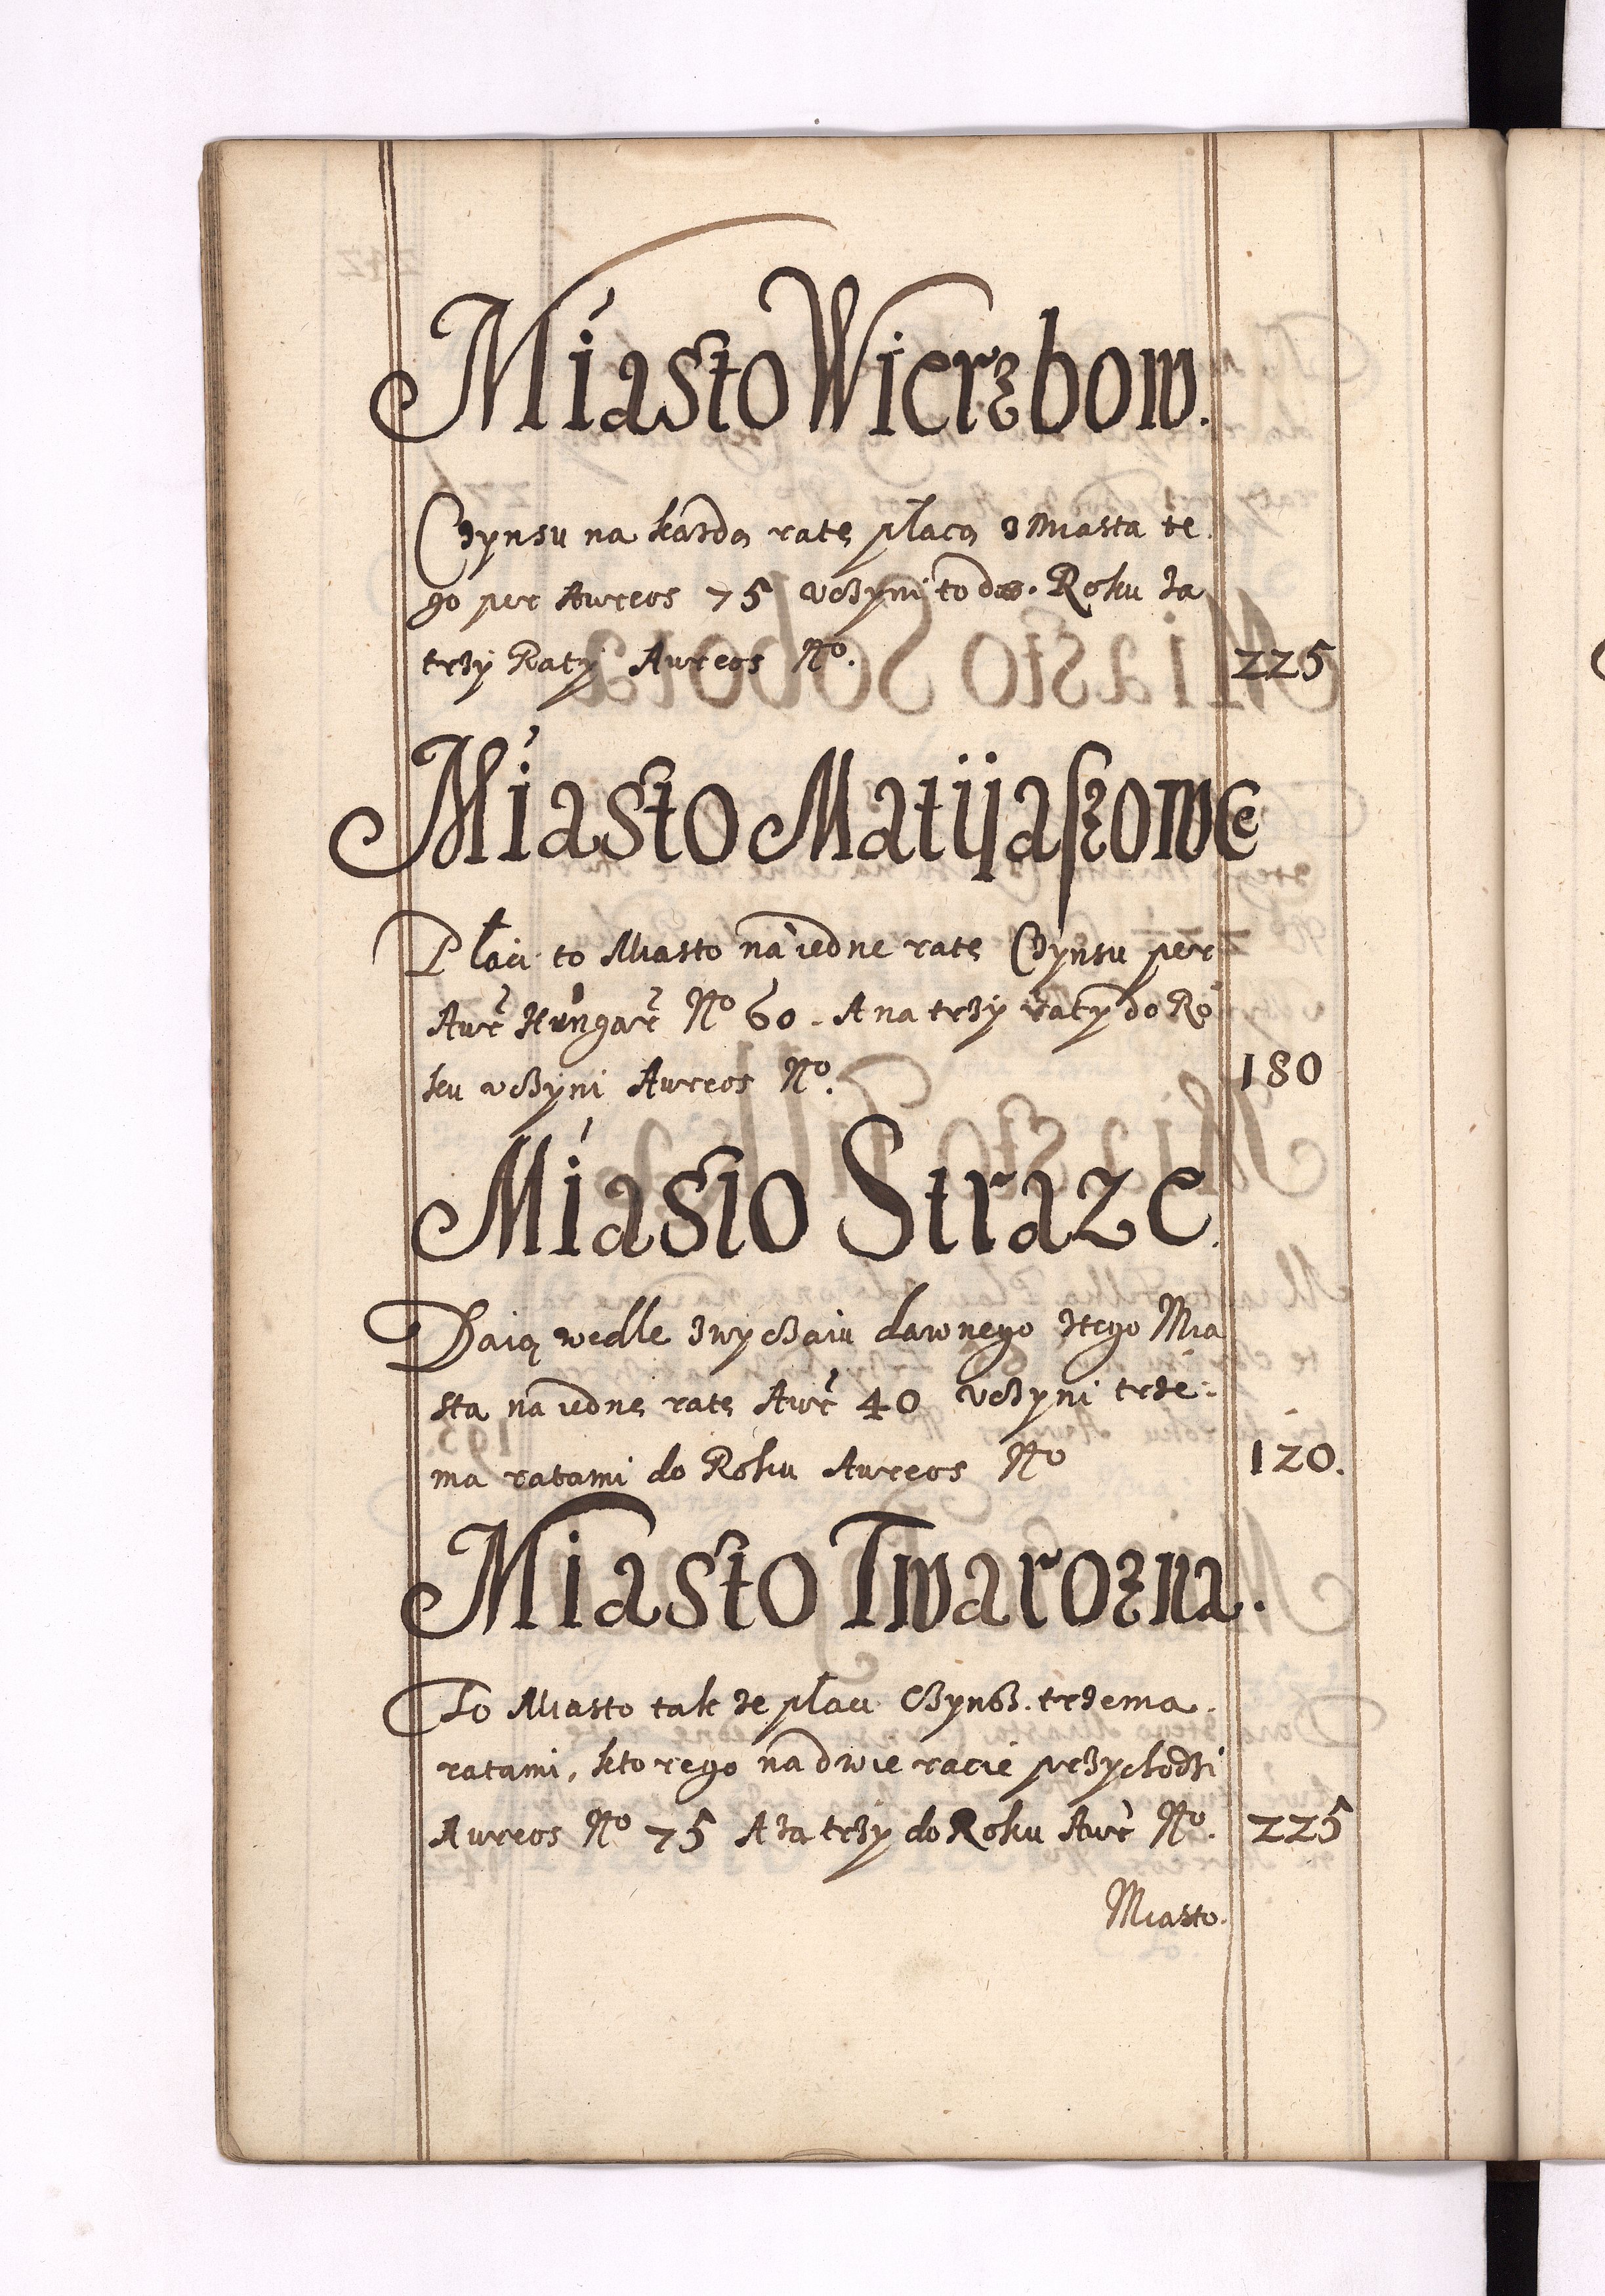 Miasto Wierzbow.
Czynsu na każdą ratę płacą z Miasta te
go per Aureos 75 uczyni to do. Roku za
trzy Raty Aureos No. 225
Miasto Matijaszowce
Płaci to Miasto na iednę ratę Czynsu per
Aur Hungar No 60. A na trzy raty do Ro
ku uczyni Aureos No. 180
Miasto Straże.
Daią wedle zwyczaiu dawnego ztego Mia
sta na iednę ratę Aur 40 uczyni trze:
ma ratami do Roku Aureos No 120.
Miasto Twarozna.
To Miasto tak że płaci Czynsz. trzema
ratami, ktorego na dwie racie przychodzi
Aureos No 75 A za trzy do Roku Aur No. 225
Miasto.